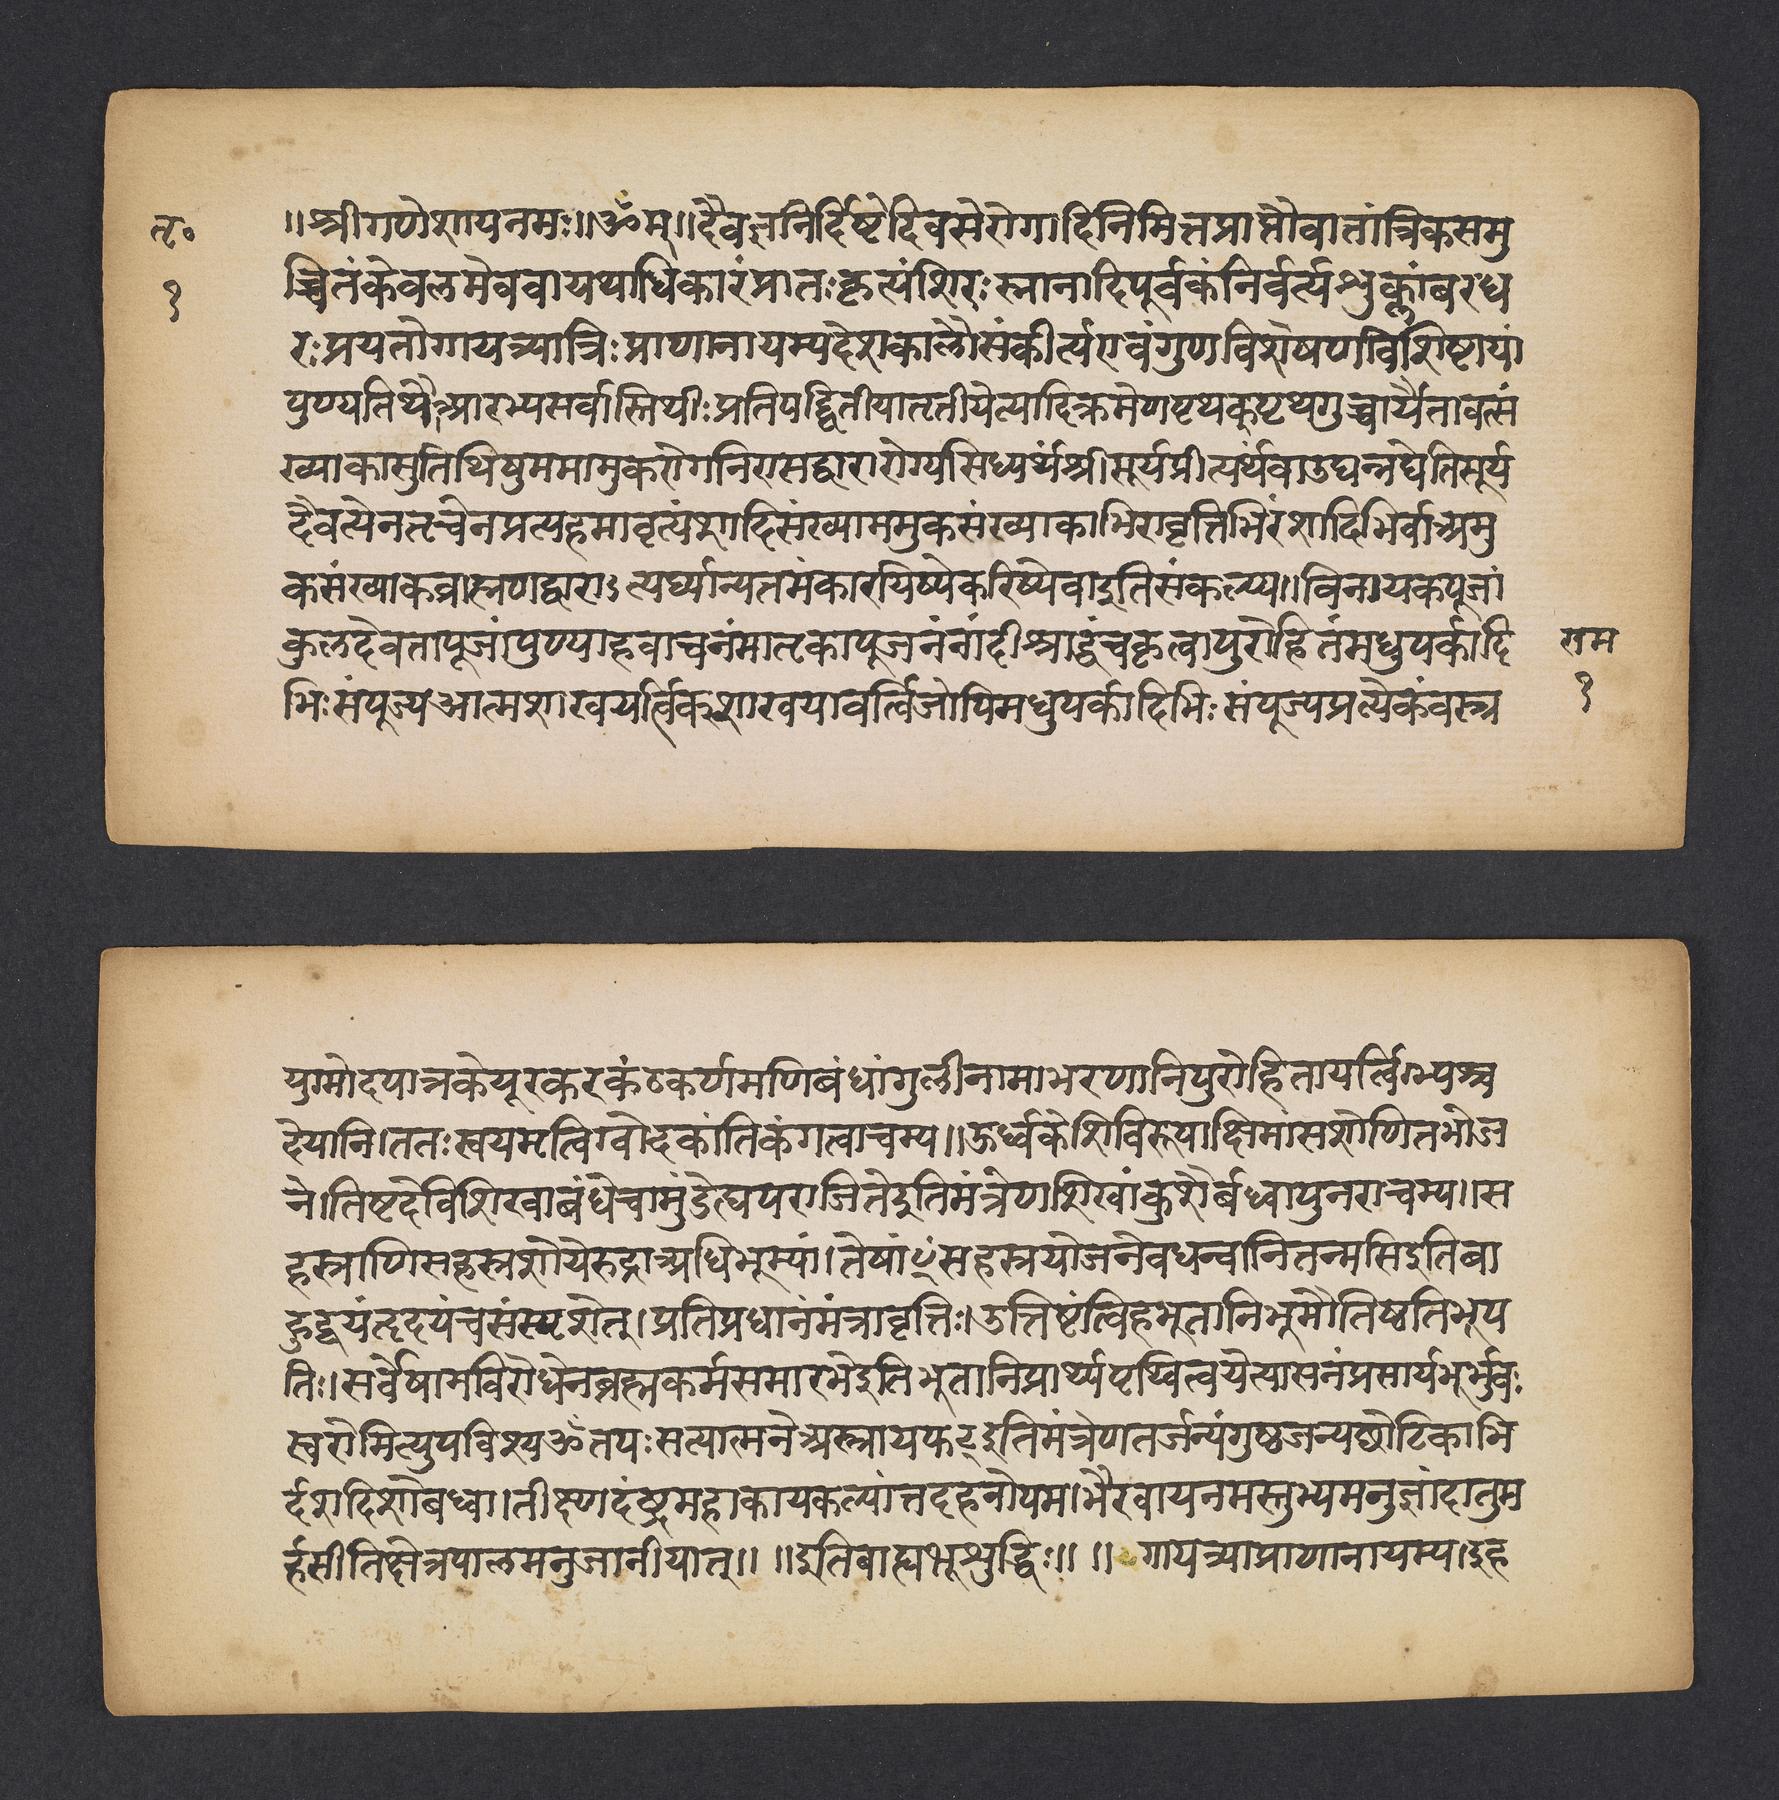 तृ॰
१
॥श्रीगणेशायनमः॥ॐम्॥दैवज्ञनिर्दिष्टेदिवसेरोगादिनिमित्तप्राप्तौवातांत्रिकसमु
च्चितंकेवलमेववायथाधिकारंप्रातःकृत्यंशिरःस्नानादिपूर्वकंनिर्वर्त्यशुक्लांबरध
रःप्रयतोगायत्र्यात्रिःप्राणानायम्यदेशकालौसंकीर्त्यएवंगुणविशेषणविशिष्टायां
पुण्यतिथौआरभ्यसर्वास्तिथीःप्रतिपद्द्वितीयातृतीयेत्यादिक्रमेणपृथक्पृथगुच्चार्यैतावत्सं
ख्याकासुतिथिषुममामुकरोगनिरासद्वारारोग्यसिध्यर्थंश्रीसूर्यप्रीत्यर्थंवाउद्यन्नद्येतिसूर्य
दैवत्येनतृचेनप्रत्यहमावृत्यंशादिसंख्याममुकसंख्याकाभिरावृत्तिभिरंशादिभिर्वाअमु
कसंख्याकब्राह्मणद्वाराऽत्यर्घ्यान्यतमंकारयिष्येकरिष्येवाइतिसंकल्प्य॥विनायकपूजां
कुलदेवतापूजांपुण्याहवाचनंमातृकापूजनंनांदीश्राद्धंचकृत्वापुरोहितंमधुपर्कादि
राम
१
भिःसंपूज्यआत्मशाखयर्त्विक्शाखयावर्त्विजोपिमधुपर्कादिभिःसंपूज्यप्रत्येकंवस्त्र
युग्मोदपात्रकेयूरकरकंठकर्णमणिबंधांगुलीनामाभरणानिपुरोहितायर्त्विग्भ्यश्च
देयानि।ततःस्वयमृत्विग्वोदकांतिकंगत्वाचम्य॥ऊर्ध्वकेशिविरूपाक्षिमांसशोणितभोज
ने।तिष्टदेविशिखाबंधेचामुंडेत्घपराजितेइतिमंत्रेणशिखांकुशैर्बध्वापुनराचम्य॥स
हस्त्राणिसहस्त्रशोयेरुद्राअधिभूम्यां।तेषांꣳसहस्त्रयोजनेवधन्वानितन्मसिइतिबा
हुद्वयंहृदयंचसंस्पृशेत्।प्रतिप्रधानंमंत्रावृत्तिः।उत्तिष्टंत्विहभूतानिभूमौतिष्ठतिभूप
तिः।सर्वेषामविरोधेनब्रह्मकर्मसमारभेइतिभूतानिप्रार्थ्यपृथ्वित्वयेत्यासनंप्रसार्यभूर्भुवः
स्वरोमित्युपविश्यॐतपःसत्यात्मनेअस्त्रायफट्इतिमंत्रेणतर्जन्यंगुष्ठजन्यछोटिकाभि
र्दशदिशोबध्वा।तीक्ष्णदंष्ट्रमहाकायकल्पांत्तदहनोपम।भैरवायनमस्तुभ्यमनुज्ञांदातुम
र्हसीतिक्षेत्रपालमनुजानीयात्॥ ॥इतिबाह्यभूशुद्धिः॥ ॥ गायत्र्याप्राणानायम्य।इह